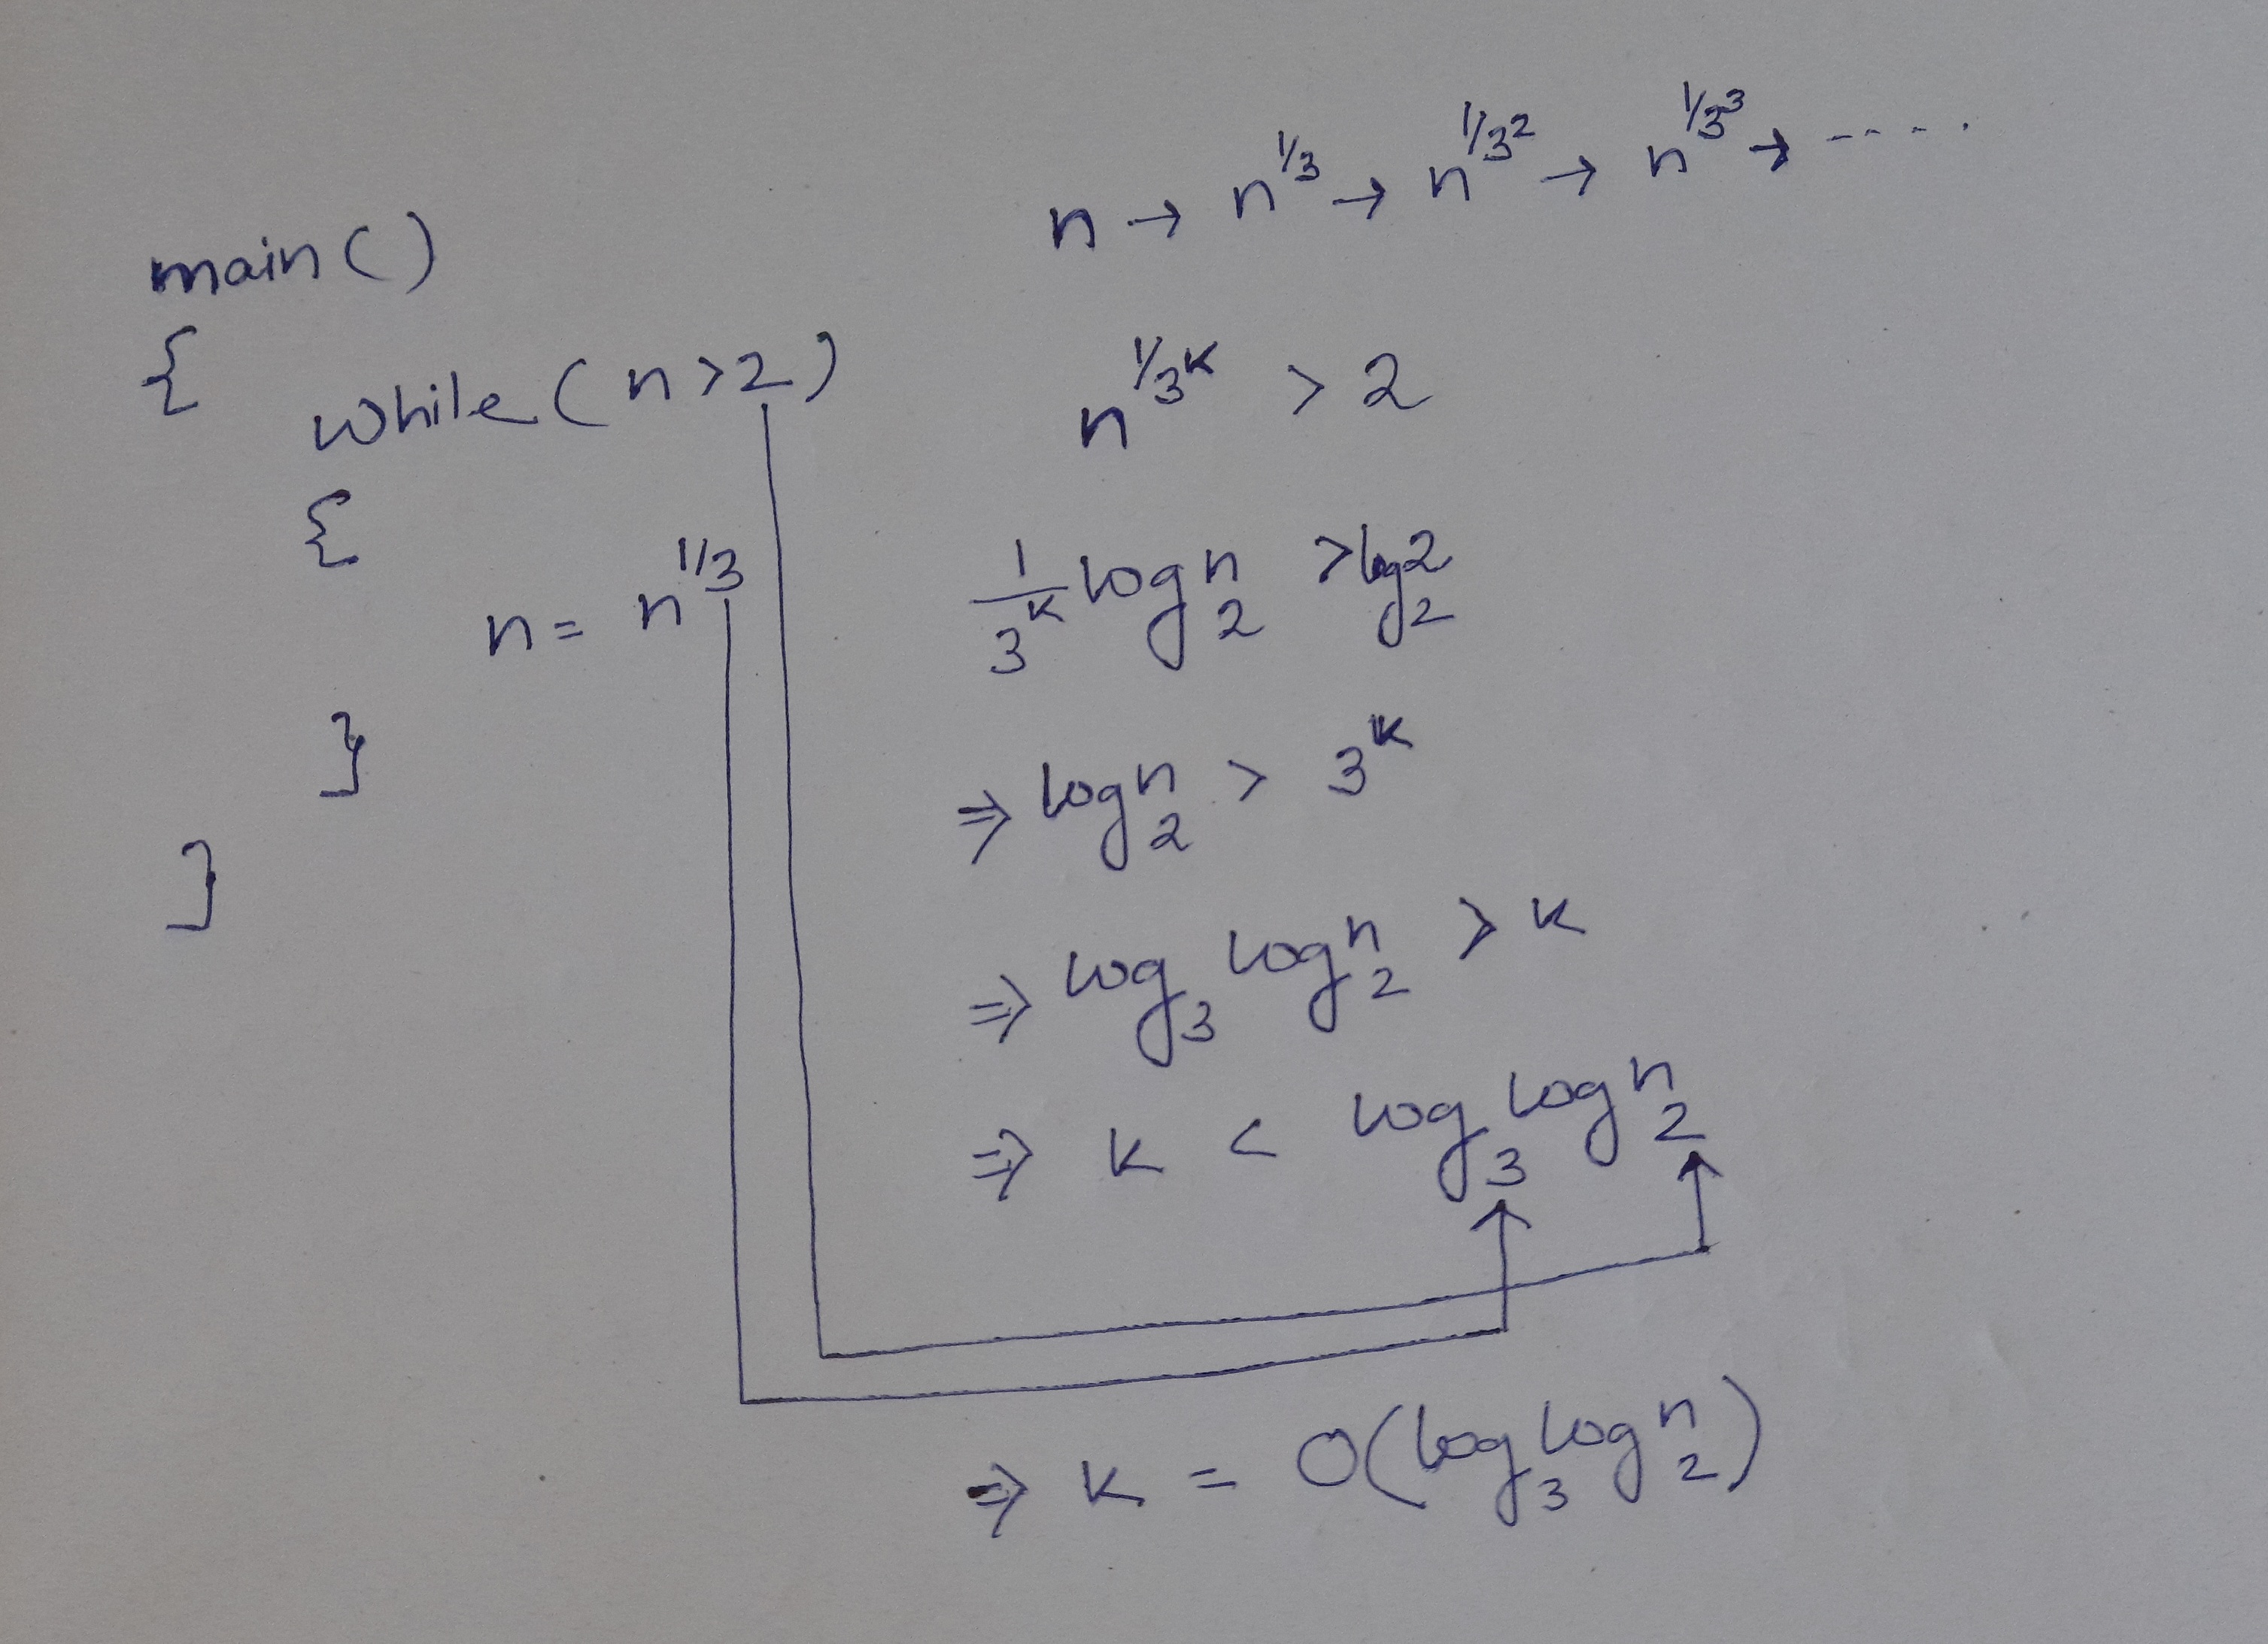 main()
{
while(n>2)
{
n = n^{1/3}
}
}
n → n^{1/3} → n^{1/3^2} → n^{1/3^3} → -----
n^{1/3^K} > 2
\frac{1}{3^K} log_2^n > log_2^2
⇒ log_2^n > 3^K
⇒ log_3 log_2^n > K
⇒ K < log_3 log_2^n
⇒ K = O(log_3 log_2^n)